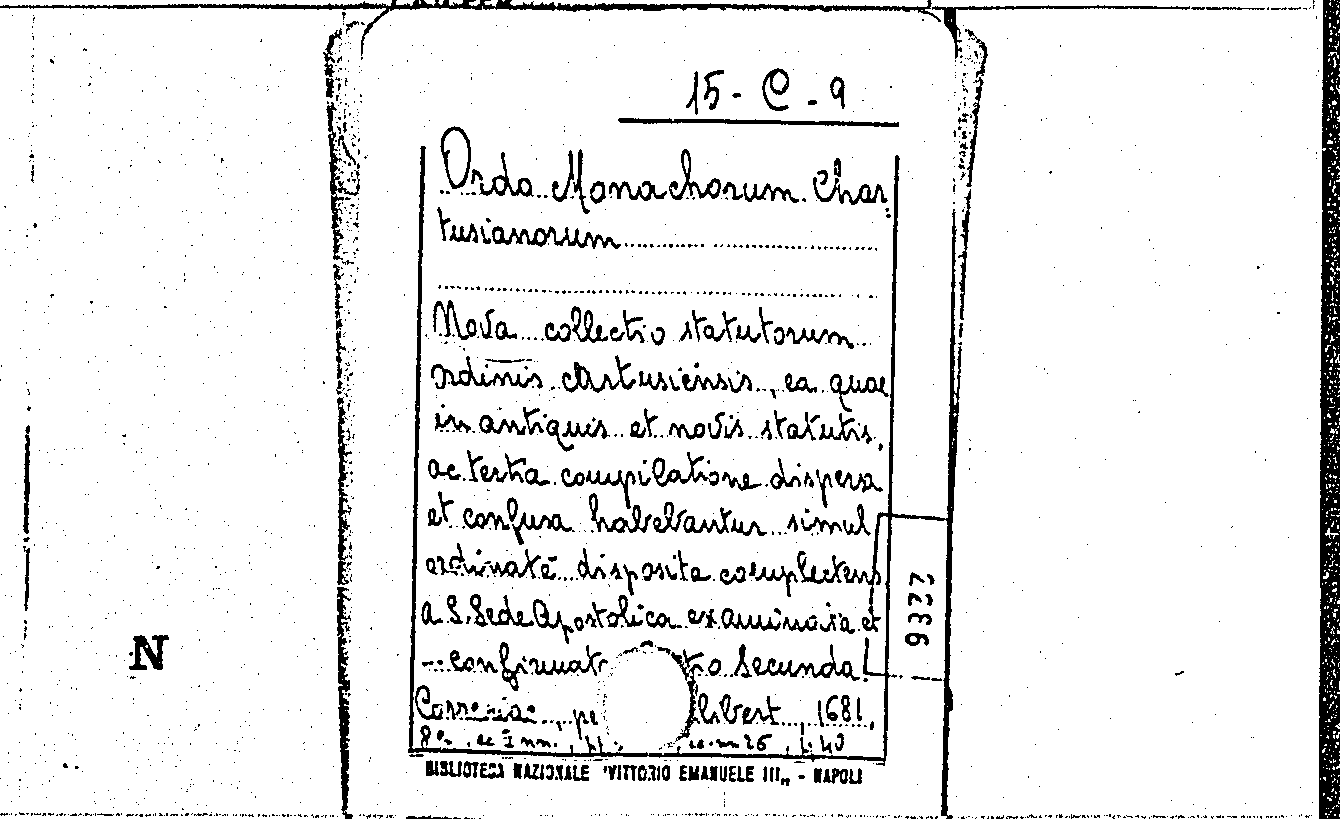 15 - C - 9
Ordo Monachorum Char
tusianorum
Nova collectio statutorum
ordinis cartusiensis, ea quae
in antiquis et novis statutis,
ac tertia compilatione dispersa
et confusa habebantur simul
ordinate disposita complectens
a S. Sede Apostolica examinata et
confirmat secunda.
Correriae, 1681,
8°
BIBLIOTECA NAZIONALE "VITTORIO EMANUELE III„ - NAPOLI
9327
N